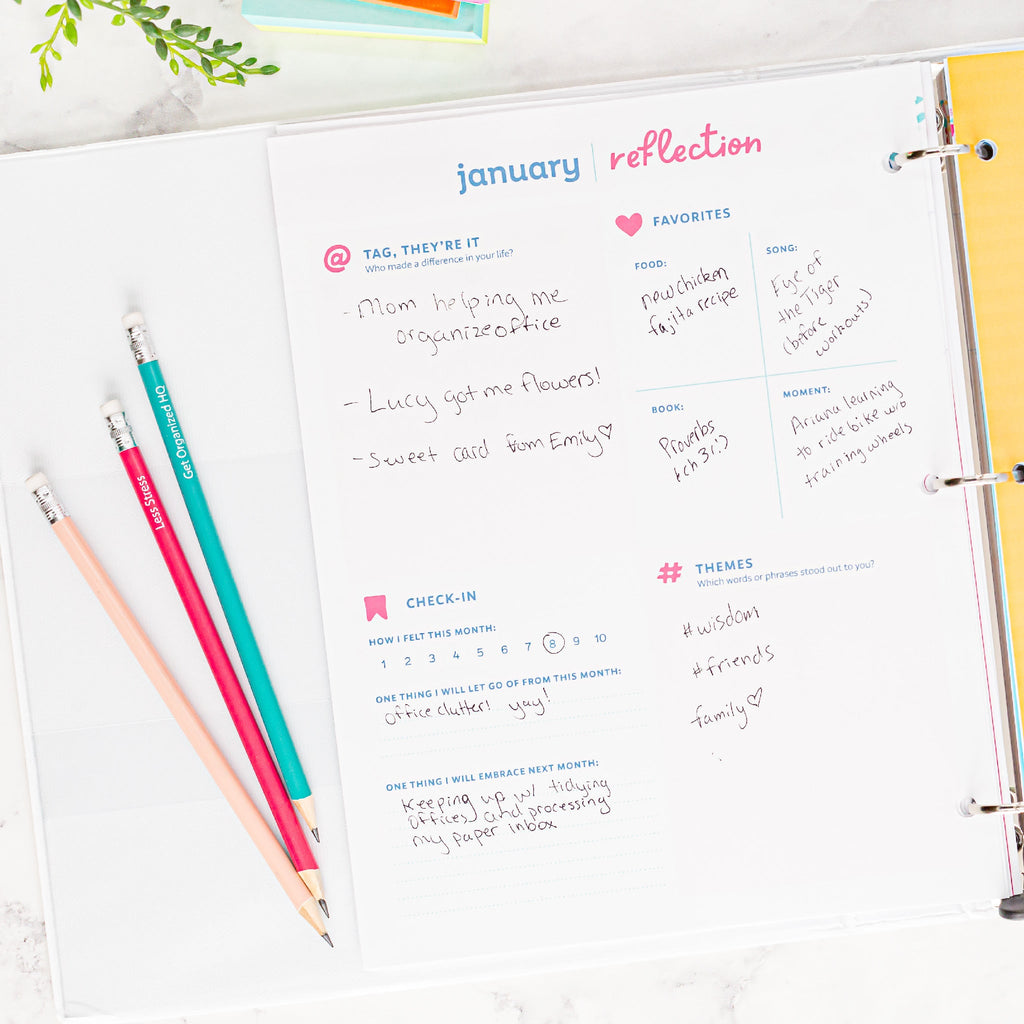 january | reflection
@ TAG, THEY'RE IT
Who made a difference in your life?
- Mom helping me
organize office
- Lucy got me flowers!
- Sweet card from Emily♡
FAVORITES
FOOD:
new chicken
fajita recipe
SONG:
Eye of
the Tiger
(before
workouts)
BOOK:
Proverbs
(ch 31!)
MOMENT:
Ariana learning
to ride bike w/o
training wheels
CHECK-IN
HOW I FELT THIS MONTH:
1 2 3 4 5 6 7 8 9 10
ONE THING I WILL LET GO OF FROM THIS MONTH:
office clutter! yay!
ONE THING I WILL EMBRACE NEXT MONTH:
Keeping up w/ tidying
offices and processing
my paper inbox
# THEMES
Which words or phrases stood out to you?
#wisdom
#friends
family♡
Get Organized HQ
Less Stress